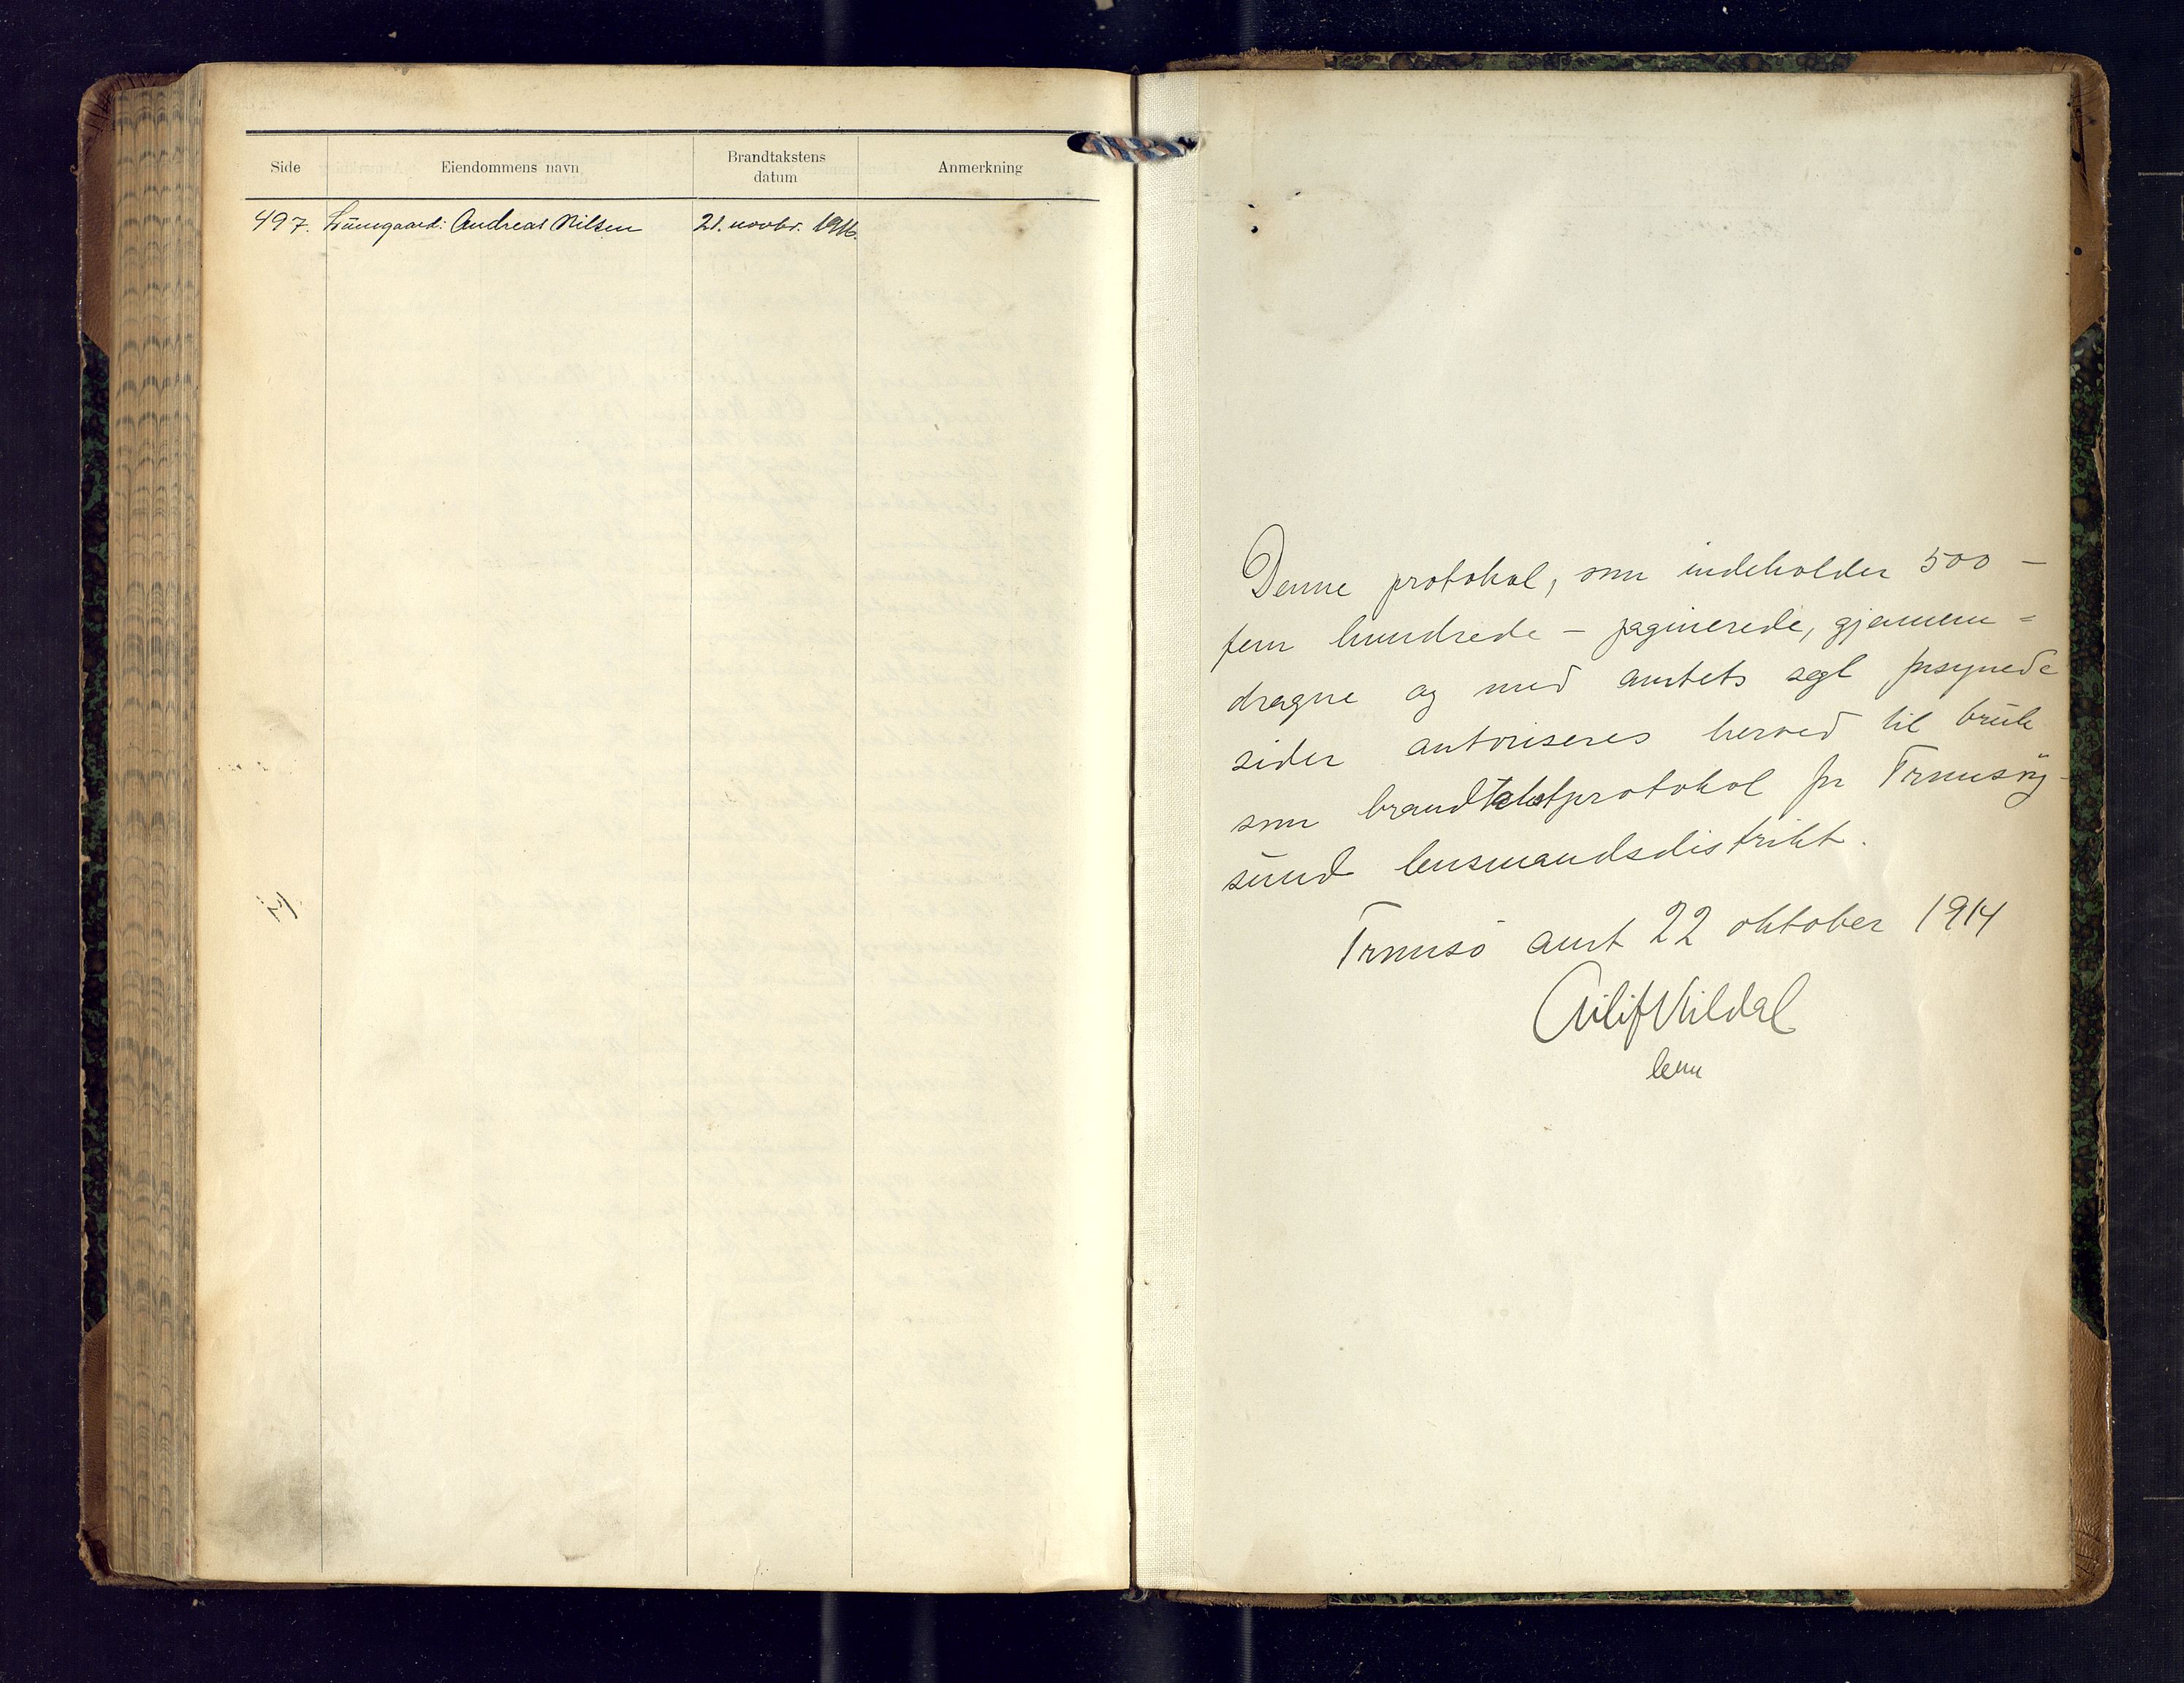 Side Eiendommens navn Brandtakstens datum Anmerkning
497. Andreas Nilsen 21. novbr. 1916.
Denne protokol, som indeholder 500 –
fem hundrede – paginerede, gjennem=
dragne og med amtets segl forsynede
sider autoriseres herved til brük
som brandtakstprotokol for Tromsøy-
sünd lensmandsdistrikt.
Tromsø amt 22 oktober 1914
Eilif Kildal